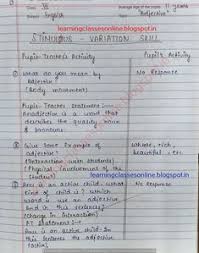 Class VI Average Age of the pupils 11 years
Subject English "Adjective"
learningclassesonline.blogspot.in
STIMULUS - VARIATION SKILL
Pupil-Teacher's Activity Pupil's Activity
① What do you mean by No Response
Adjective?
(Body movement)
Pupil-Teacher Statement :-
An adjective is a word that
describes the quality noun
& pronoun.
② Give some Example of Whole, rich,
adjective? beautiful etc.
(Interaction with students)
(Physical involvement of the
student)
learningclassesonline.blogspot.in
is an active child. What No Response
kind of child is? Which
word is use an adjective
in this sentence?
(Change in interaction)
PT Statement :-
is an active child. In
this sentence the adjective